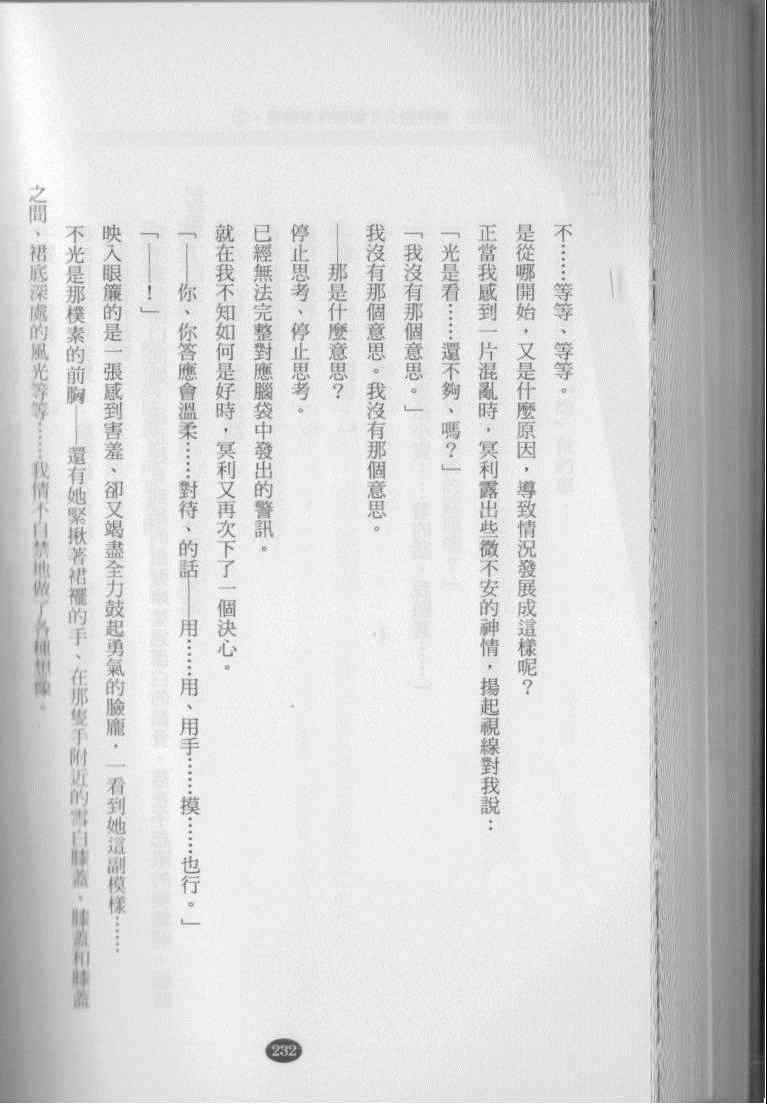 不……等等、等等。
是從哪開始，又是什麼原因，導致情況發展成這樣呢？
正當我感到一片混亂時，冥利露出些微不安的神情，揚起視線對我說：
「光是看……還不夠、嗎？」
「我沒有那個意思。」
我沒有那個意思。我沒有那個意思。
——那是什麼意思？
停止思考、停止思考。
已經無法完整對應腦袋中發出的警訊。
就在我不知如何是好時，冥利又再次下了一個決心。
「——你、你答應會溫柔……對待、的話——用……用、用手……摸……也行。」
「——！」
映入眼簾的是一張感到害羞、卻又竭盡全力鼓起勇氣的臉龐，一看到她這副模樣……
不光是那樸素的前胸——還有她緊揪著裙襬的手、在那隻手附近的雪白膝蓋，膝蓋和膝蓋
之間、裙底深處的風光等等……我情不自禁地做了各種想像。
232